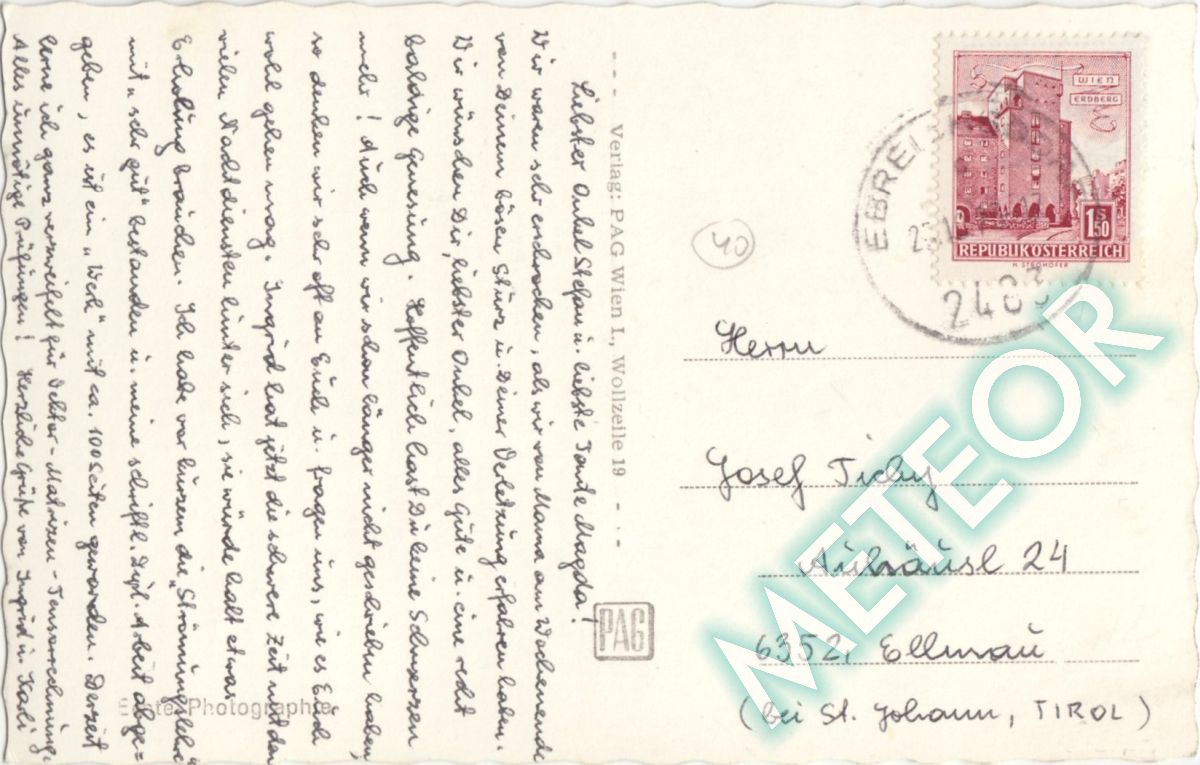 Liebster Onkel Stefan u. liebste Tante Magda!
Wir waren sehr erschrocken, als wir von Mama am Wochenende
von Deinem bösen Sturz u. Deiner Verletzung erfahren haben.
Wir wünschen Dir, liebster Onkel, alles Gute u. eine recht
baldige Genesung. Hoffentlich hast Du keine Schmerzen
mehr! Auch wenn wir schon länger nicht geschrieben haben,
so denken wir sehr oft an Euch u. fragen uns, wie es Euch
wohl gehen mag. Ingrid hat jetzt die schwere Zeit mit den
vielen Nachtdiensten hinter sich, sie würde halt etwas
Erholung brauchen. Ich habe vor kurzem die „Strömungslehre“
mit „sehr gut“ bestanden u. meine schriftl. Dipl. Arbeit abge=
geben, es ist ein „Werk“ mit ca. 100 Seiten geworden. Derzeit
lerne ich ganz verzweifelt für Vektor-Matrizen-Tensorrechnung.
Alles unnötige Prüfungen! Herzliche Grüße von Ingrid u. Kali
Verlag: PAG Wien I., Wollzeile 19
PAG
Echte Photographie
40
WIEN
ERDBERG
S
1.50
REPUBLIK ÖSTERREICH
H. STROHOFER
2483
Herrn
Josef Tichy
Auhäusl 24
6352, Ellmau
(bei St. Johann, TIROL)
METEOR